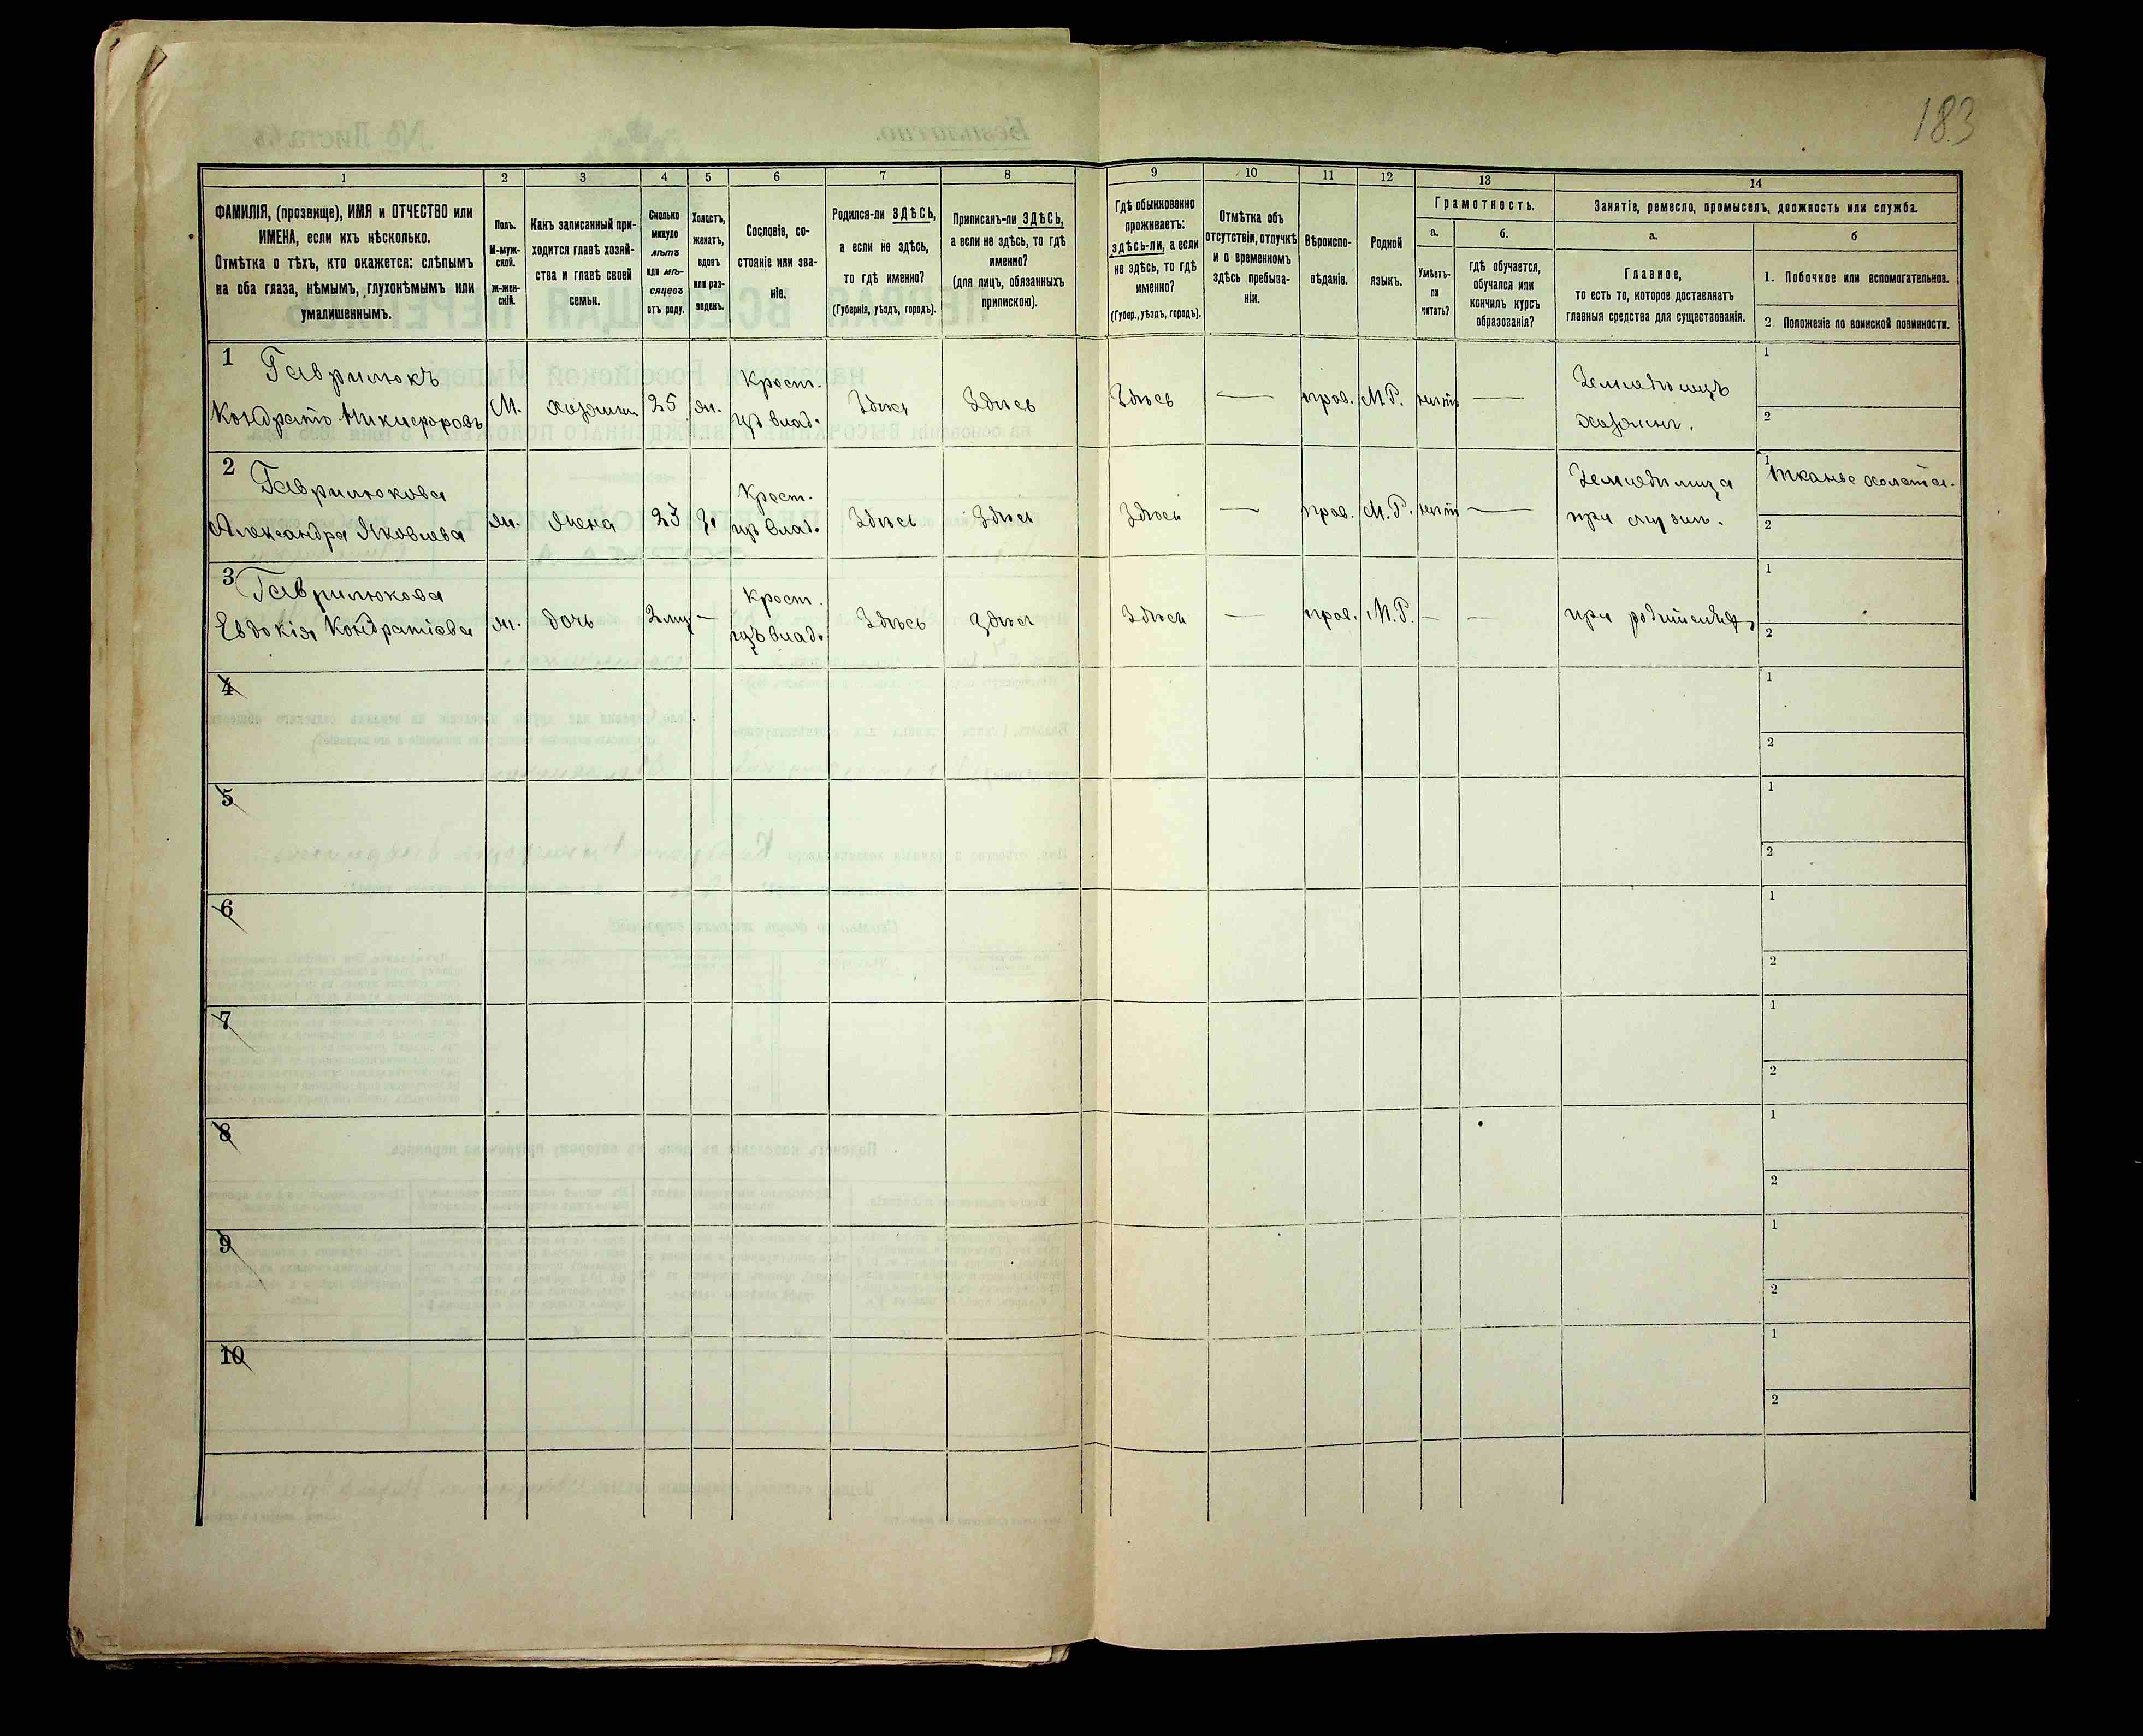 183
1 2 3 4 5 6 7 8 9 10 11 12 13 14
ФАМИЛІЯ, (прозвище), ИМЯ и ОТЧЕСТВО или
ИМЕНА, если ихъ нѣсколько.
Отмѣтка о тѣхъ, кто окажется: слѣпымъ
на оба глаза, нѣмымъ, глухонѣмымъ или
умалишеннымъ.
Полъ.
М-муж-
ской.
ж-жен-
скій.
Какъ записанный при-
ходится главѣ хозяй-
ства и главѣ своей
семьи.
Сколько
минуло
лѣтъ
или мѣ-
сяцевъ
отъ роду.
Холостъ,
женатъ,
вдовъ
или раз-
веденъ.
Сословіе, со-
стояніе или зва-
ніе.
Родился-ли ЗДѢСЬ,
а если не здѣсь,
то гдѣ именно?
(Губернія, уѣздъ, городъ).
Приписанъ-ли ЗДѢСЬ,
а если не здѣсь, то гдѣ
именно?
(для лицъ, обязанныхъ
припискою).
Гдѣ обыкновенно
проживаетъ:
здѣсь-ли, а если
не здѣсь, то гдѣ
именно?
(Губер., уѣздъ, городъ).
Отмѣтка объ
отсутствіи, отлучкѣ
и о временномъ
здѣсь пребыва-
ніи.
Вѣроиспо-
вѣданіе.
Родной
языкъ.
Грамотность.
а.
Умѣетъ-
ли
читать?
б.
гдѣ обучается,
обучался или
кончилъ курсъ
образованія?
Занятіе, ремесло, промыселъ, должность или служба.
а.
Главное,
то есть то, которое доставляетъ
главныя средства для существованія.
б
1. Побочное или вспомогательное.
2 Положеніе по воинской повинности.
1 Гаврилюкъ Крест. Земледѣлецъ 1
Кондратъ Никифоровъ М. хозяинъ 25 ж. изъ влад. Здѣсь Здѣсь Здѣсь — прав. М.Р. нѣтъ — хозяинъ. 2
2 Гаврилюкова Крест. 1 тканье холста.
Александра Яковлева ж. жена 23 з. изъ влад. Здѣсь Здѣсь Здѣсь — прав. М.Р. нѣтъ — при 2
3 Гаврилюкова Крест. 1
Евдокія Кондратіева ж. дочь — изъ влад. Здѣсь Здѣсь Здѣсь — прав. М.Р. — — при родителяхъ 2
4 1
2
5 1
2
6 1
2
7 1
2
8 1
2
9 1
2
10 1
2